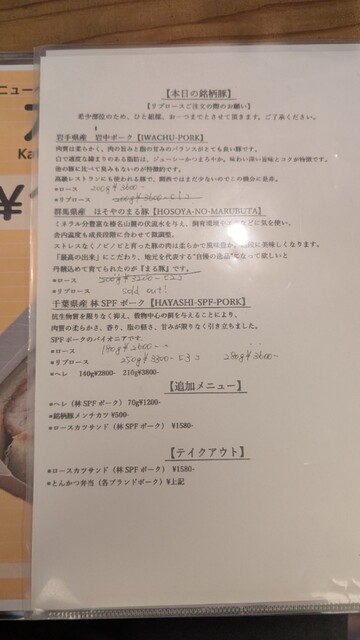 ニュー
Ka
¥
【本日の銘柄豚】
【リブロースご注文の際のお願い】
希少部位のため、ひと組様、お一つまでとさせて頂きます。ご了承ください。
岩手県産 岩中ポーク【IWACHU-PORK】
肉質は柔らかく、肉の旨みと脂の甘みのバランスがとても良い豚です。
白で適度な締まりのある脂肪は、ジューシーかつまろやか。味わい深い旨味とコクが特徴です。
他の豚に比べて臭みもないのが特徴的です。
高級レストランにも使われる豚で、関西ではまだ少ないのでこの機会に是非。
*ロース 200g¥2600-
*リブロース
群馬県産 ほそやのまる豚【HOSOYA-NO-MARUBUTA】
ミネラル分豊富な榛名山麓の伏流水を与え、飼育環境やエサなどに気を使い、
舎内温度も成長段階に合わせて微調整。
ストレスなくノビノビと育った豚の肉は柔らかで風味豊か、
「最高の出来」にこだわり、地元を代表する"自慢の逸品"になって欲しいと
丹精込めて育てられたのが『まる豚』です。
*ロース
*リブロース sold out!
千葉県産 林 SPF ポーク【HAYASHI-SPF-PORK】
抗生物質を限りなく抑え、穀物中心の餌を与えることにより、
肉質の柔らかさ、香り、脂の軽さ、甘みが限りなく引き立ちました。
SPF ポークのパイオニアです。
*ロース 180g¥2600-
*リブロース 250g¥3300- 280g¥3600-
*ヘレ 140g¥2800- 210g¥3800-
【追加メニュー】
*ヘレ（林 SPF ポーク） 70g¥1200-
*銘柄豚メンチカツ ¥500-
*ロースカツサンド（林 SPF ポーク） ¥1580-
【テイクアウト】
*ロースカツサンド（林 SPF ポーク） ¥1580-
*とんかつ弁当（各ブランドポーク）¥上記